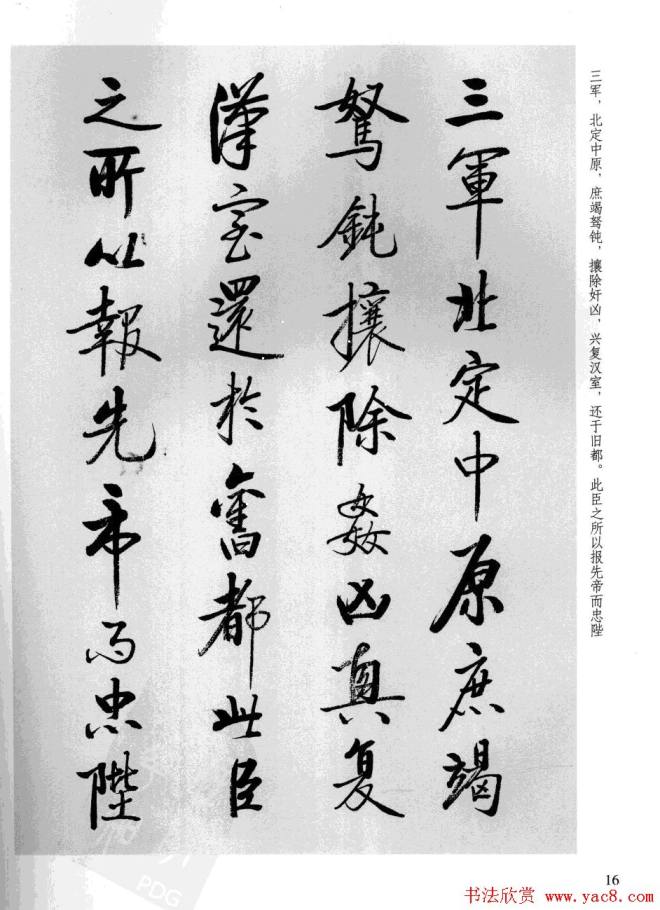 三軍北定中原庶竭
駑鈍攘除姦凶興复
漢室還於舊都此臣
之所以報先帝而忠陛
三军，北定中原，庶竭驽钝，攘除奸凶，兴复汉室，还于旧都。此臣之所以报先帝而忠陛
16
书法欣赏 www.yac8.com
PDG